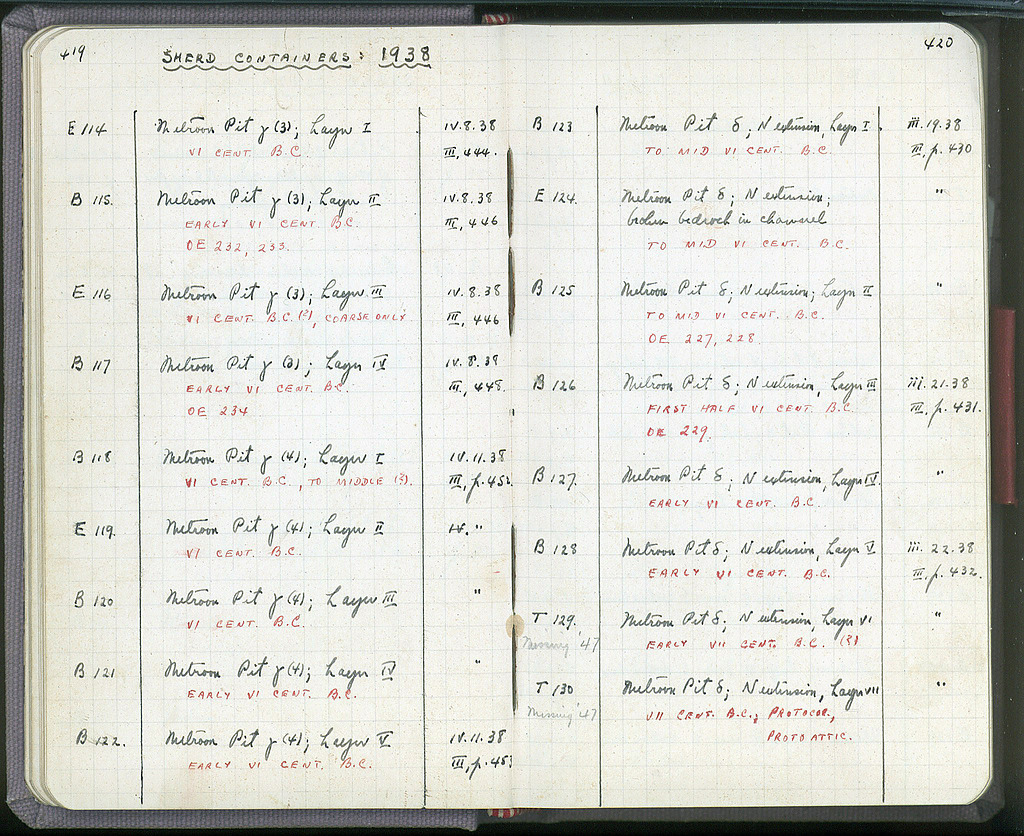 419
SHERD CONTAINERS: 1938
E 114 Metroon Pit γ (3); Layer I IV.8.38
VI CENT. B.C. III, 444.
B 115. Metroon Pit γ (3); Layer II IV.8.38
EARLY VI CENT. B.C. III, 446
OE 232, 233.
E 116 Metroon Pit γ (3); Layer III IV.8.38
VI CENT. B.C.(?), COARSE ONLY III, 446
B 117 Metroon Pit γ (3); Layer IV IV.8.38
EARLY VI CENT. B.C. III, 448.
OE 234
B 118 Metroon Pit γ (4); Layer I IV.11.38
VI CENT. B.C., TO MIDDLE (?). III, p.452
E 119. Metroon Pit γ (4); Layer II IV. "
VI CENT. B.C.
B 120 Metroon Pit γ (4); Layer III "
VI CENT. B.C.
B 121 Metroon Pit γ (4); Layer IV "
EARLY VI CENT. B.C.
B 122. Metroon Pit γ (4); Layer V IV.11.38
EARLY VI CENT. B.C. III, p.45
420
B 123 Metroon Pit δ, N extension, Layer I. iii.19.38
TO MID VI CENT. B.C. III, p. 430
E 124. Metroon Pit δ; N extension; "
broken bedrock in channel
TO MID VI CENT. B.C.
B 125 Metroon Pit δ; N extension; Layer II "
TO MID VI CENT. B.C.
OE 227, 228.
B 126 Metroon Pit δ; N extension, Layer III iii.21.38
FIRST HALF VI CENT. B.C. III, p. 431.
OE 229.
B 127. Metroon Pit δ; N extension, Layer IV. "
EARLY VI CENT. B.C.
B 128 Metroon Pit δ; N extension, Layer V iii.22.38
EARLY VI CENT. B.C. III, p. 432.
T 129. Metroon Pit δ; N extension, Layer VI "
Missing '47 EARLY VII CENT. B.C. (?)
T 130 Metroon Pit δ; N extension, Layer VII "
Missing '47 VII CENT. B.C.; PROTOCOR.,
PROTOATTIC.